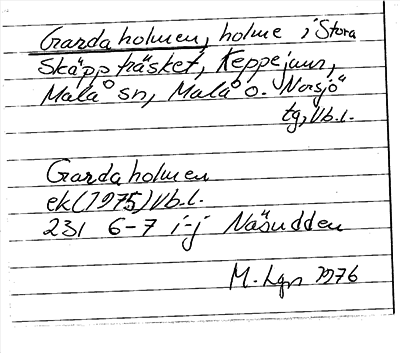 Gardaholmen, holme i Stora
Skäppträsket, Keppejaur,
Malå sn, Malå o. Norsjö
tg, Vb.l.
Gardaholmen
ek (1975) Vb.l.
231 6-7 i-j Näsudden
M. Lgn 1976